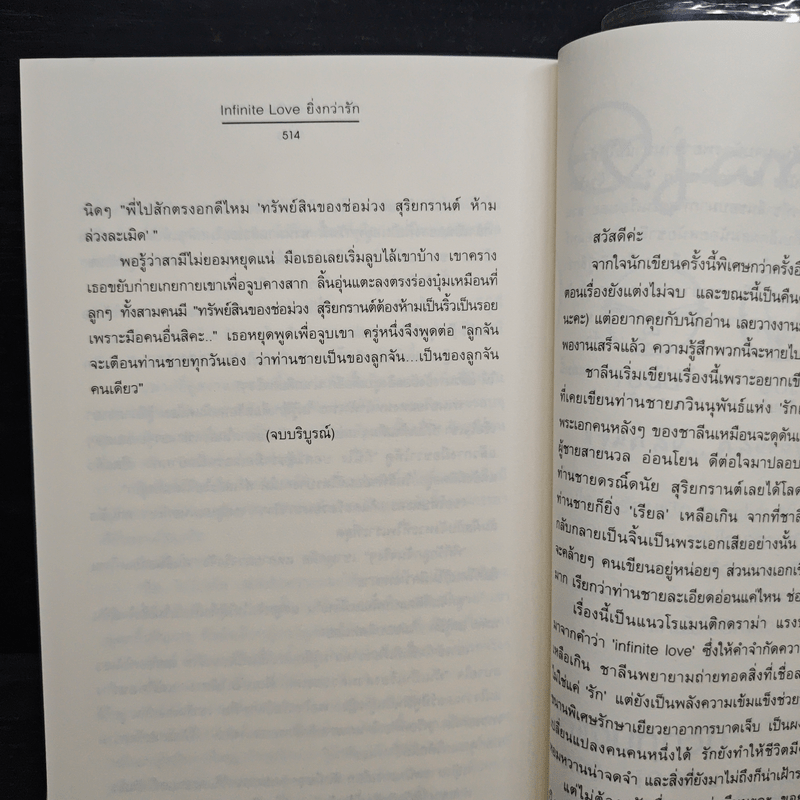 Infinite Love ยิ่งกว่ารัก
514
นิดๆ "พี่ไปสักตรงอกดีไหม 'ทรัพย์สินของช่อม่วง สุริยกรานต์ ห้าม
ล่วงละเมิด' "
พอรู้ว่าสามีไม่ยอมหยุดแน่ มือเธอเลยเริ่มลูบไล้เขาบ้าง เขาคราง
เธอขยับก่ายเกยกายเขาเพื่อจูบคางสาก ลิ้นอุ่นแตะลงตรงร่องบุ๋มเหมือนที่
ลูกๆ ทั้งสามคนมี "ทรัพย์สินของช่อม่วง สุริยกรานต์ต้องห้ามเป็นริ้วเป็นรอย
เพราะมือคนอื่นสิคะ.." เธอหยุดพูดเพื่อจูบเขา ครู่หนึ่งจึงพูดต่อ "ลูกจัน
จะเตือนท่านชายทุกวันเอง ว่าท่านชายเป็นของลูกจัน...เป็นของลูกจัน
คนเดียว"
(จบบริบูรณ์)
สวัสดีค่ะ
จากใจนักเขียนครั้งนี้พิเศษกว่าครั้ง
ตอนเรื่องยังแต่งไม่จบ และขณะนี้เป็นคืน
นะคะ) แต่อยากคุยกับนักอ่าน เลยวางงาน
พองานเสร็จแล้ว ความรู้สึกพวกนี้จะหายไป
ชาลีนเริ่มเขียนเรื่องนี้เพราะอยากเขี
ที่เคยเขียนท่านชายภวินนุพันธ์แห่ง 'รัก
พระเอกคนหลังๆ ของชาลีนเหมือนจะดุดัน
ผู้ชายสายนวล อ่อนโยน ดีต่อใจมาปลอบ
ท่านชายดรณิ์ดนัย สุริยกรานต์เลยได้โลด
ท่านชายก็ยิ่ง 'เรียล' เหลือเกิน จากที่ชาลี
กลับกลายเป็นจิ้นเป็นพระเอกเสียอย่างนั้น
จะคล้ายๆ คนเขียนอยู่หน่อยๆ ส่วนนางเอก
มาก เรียกว่าท่านชายละเอียดอ่อนแค่ไหน ช่อ
เรื่องนี้เป็นแนวโรแมนติกดราม่า แรง
มาจากคำว่า 'infinite love' ซึ่งให้คำจำกัดความ
เหลือเกิน ชาลีนพยายามถ่ายทอดสิ่งที่เชื่อ
ไม่ใช่แค่ 'รัก' แต่ยังเป็นพลังความเข้มแข็งช่วย
พิเศษรักษาเยียวยาอาการบาดเจ็บ เป็น
เปลี่ยนแปลงคนคนหนึ่งได้ รักยังทำให้ชีวิต
หวานน่าจดจำ และสิ่งที่ยังมาไม่ถึงก็น่าเฝ้า